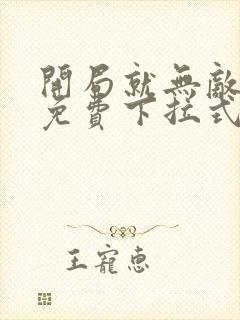 開局就無敵
免費下拉式
王寵惠